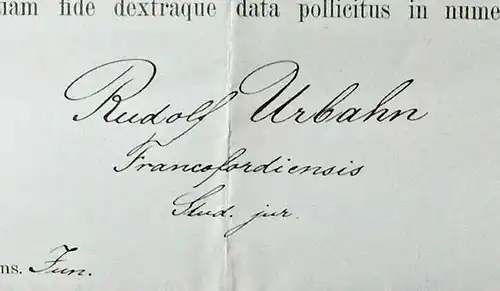 uam fide dextraque data pollicitus in nume
Rudolf Urbahn
Francofordiensis
Stud. jur.
ns. Jun.